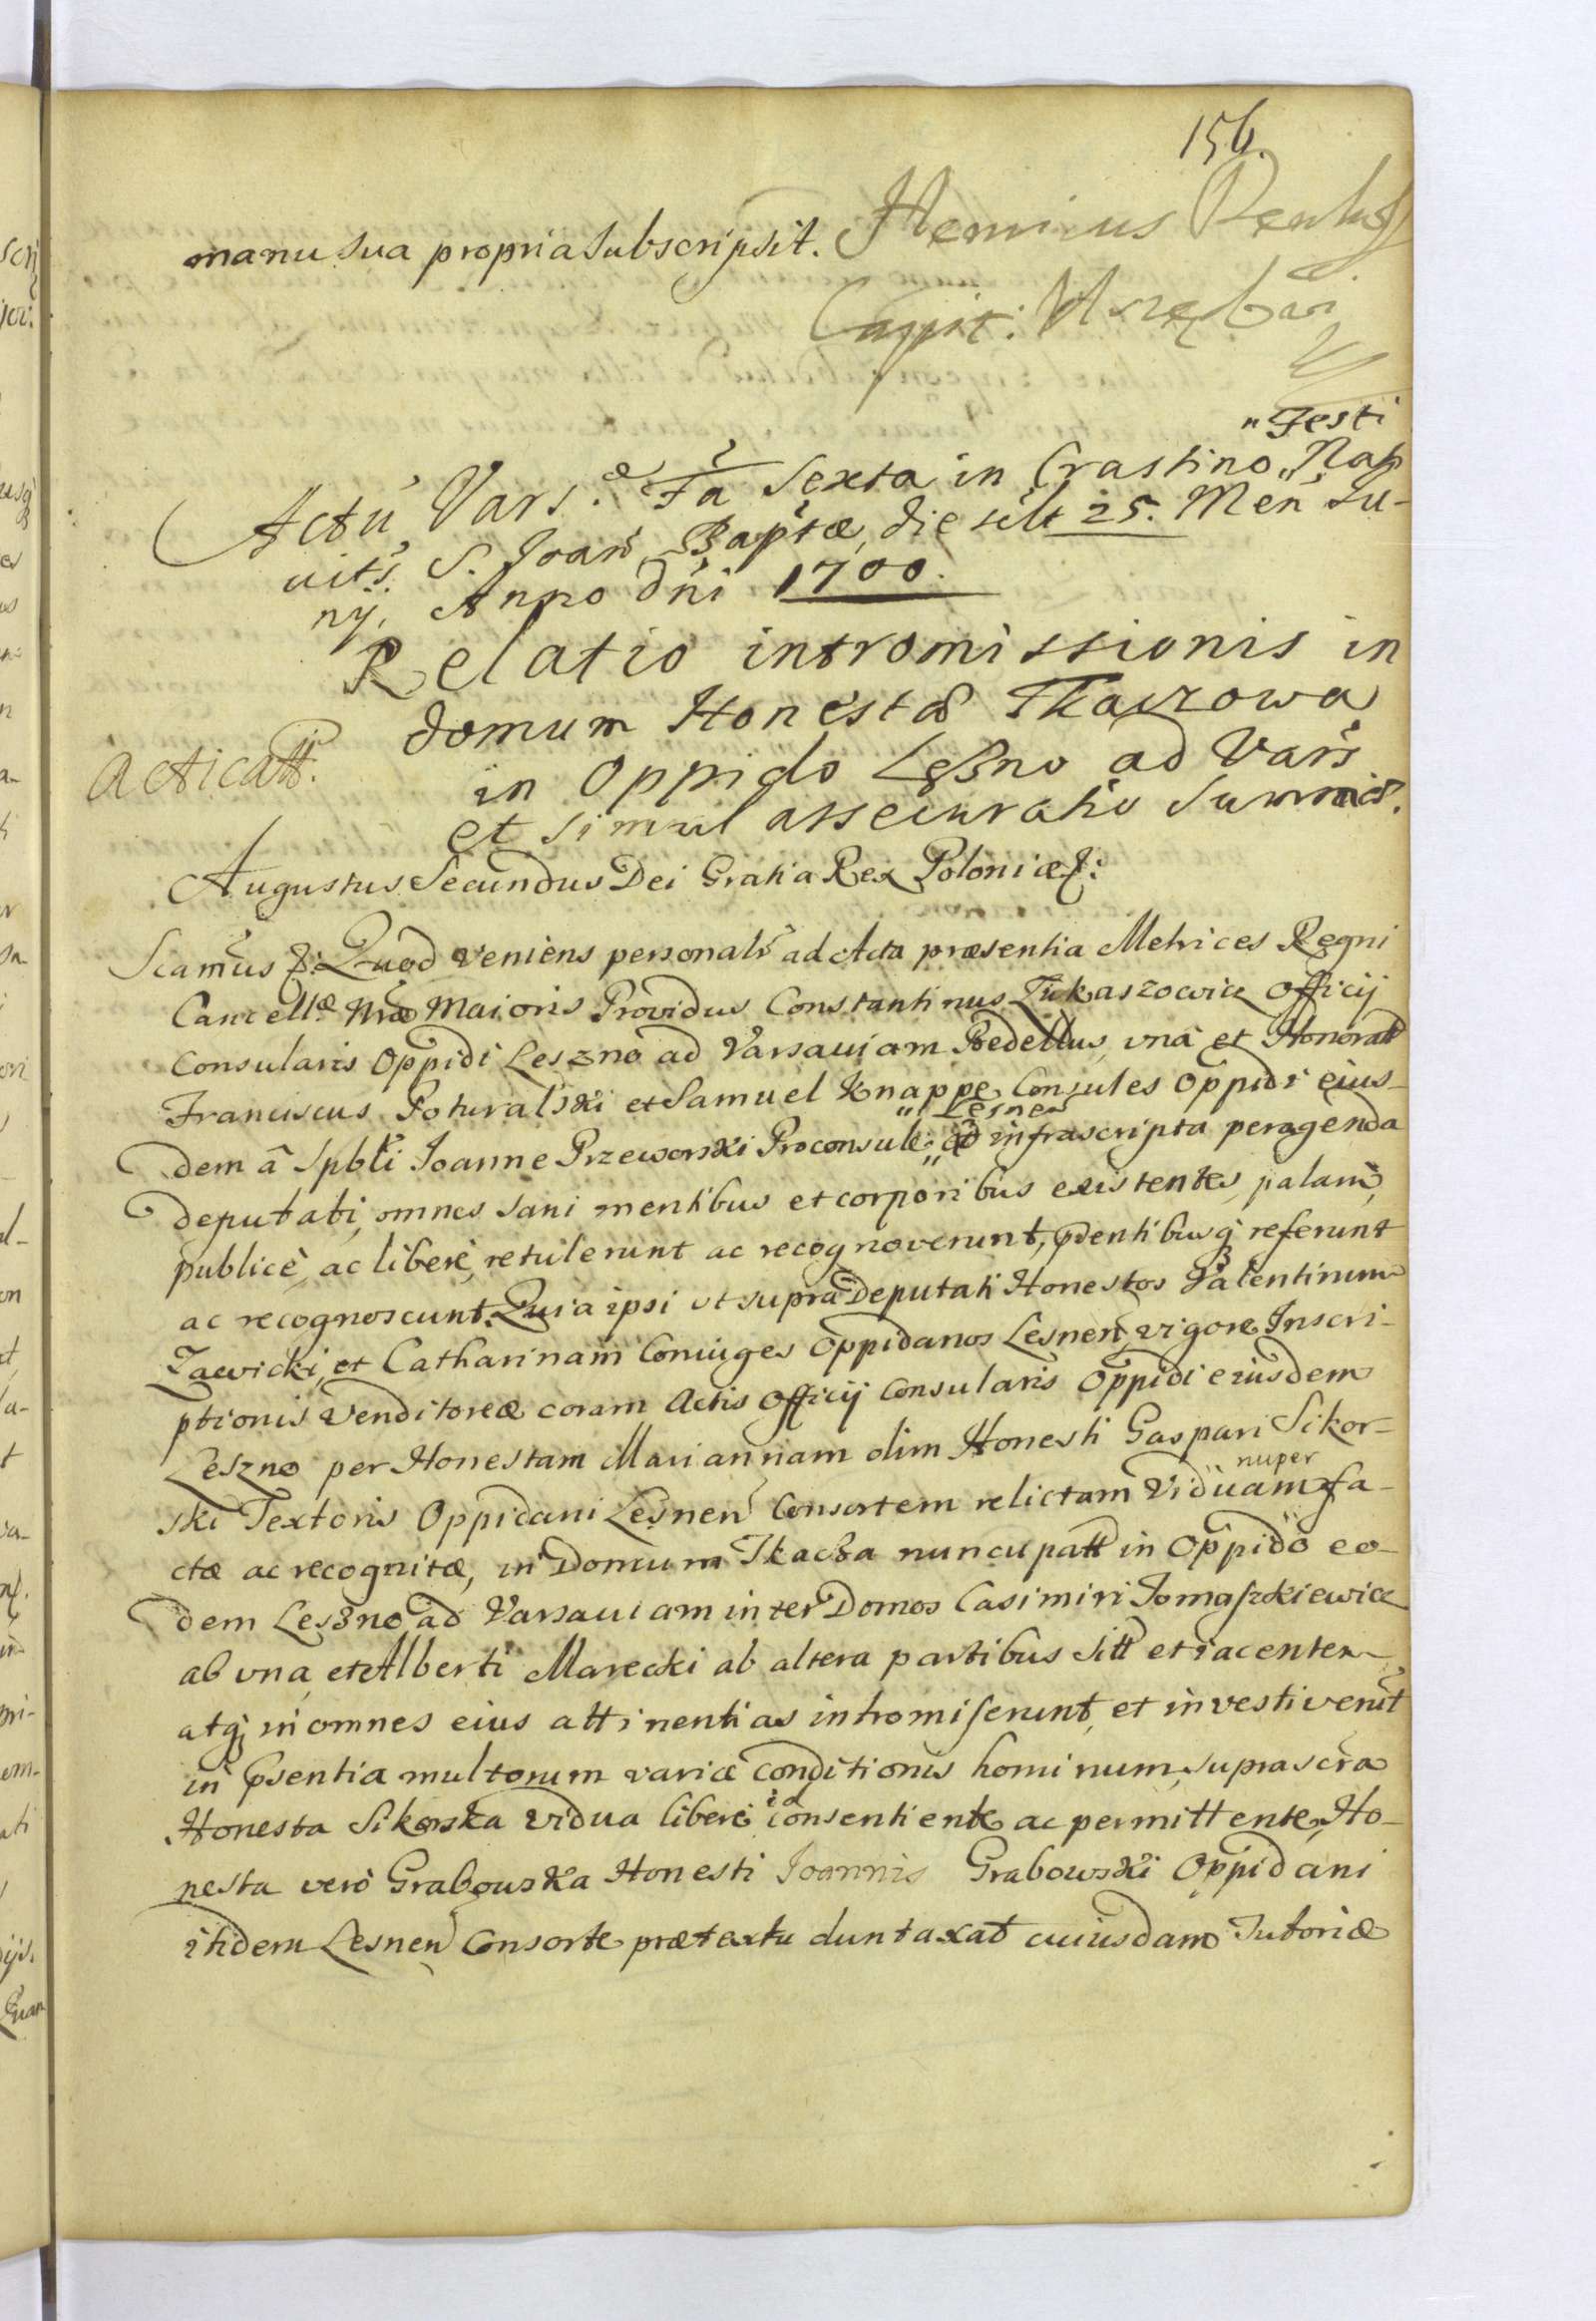 156.
manu sua propria subscripsit. Henricus
Capit:
"Festi
Actũ Vars. Fa Sexta in Crastino "Nati
uits. S. Joan Baptæ, die scilt 25. Men Ju-
nÿ, Anno dni 1700.
Relatio intromissionis in
domum Honestæ Tkaczowa
Acticatt.
in Oppido Leßno ad Vars
et simul assecuratio Summæ.
Augustus Secundus Dei Gratia Rex Poloniæ &:
Scamus &: Quod veniens personalr ad Acta præsentia Metrices Regni
Cancellæ Nræ Maioris Providus Constantinus Lukaszowicz Officij
Consularis Oppidi Leszno ad Varsauiam Bedellus, vnà et Honorati
Franciscus Poturalski et Samuel Knappe Consules Oppidi eius-
"Lesnen
dem â Spbli Joanne Przeworski Proconsule "ad infrascripta peragenda
deputati, omnes sani mentibus et corporibus existentes, palam,
publicè, ac liberè, retulerunt ac recognoverunt, pdentibusq referunt
ac recognoscunt. Quia ipsi ut supra Deputati Honestos Valentinum
Zawicki, et Catharinam Coniuges Oppidanos Lesnen, vigore Inscri-
ptionis Venditoreæ coram Actis Officij Consularis Oppidi eiusdem
Leszno per Honestam Mariannam olim Honesti Gaspari Sikor-
nuper
ski Textoris Oppidani Lesnen Consortem relictam Viduam fa-
ctæ ac recognitæ, in Domum Tkacza nuncupatt in Oppido eo-
dem Leszno ad Varsauiam inter Domos Casimiri Tomaszkiewicz
ab vna, et Alberti Marecki ab altera partibus sitt et iacenten
atq in omnes eius attinentias intromiserunt, et investiverũt
in psentia multorum variæ conditionis hominum, suprascra
Honesta Sikorska vidua liberè id consentiente ac permittente, Ho-
nesta verò Grabowska Honesti Joannis Grabowski Oppidani
itidem Lesnen Consorte prætextu duntaxat cuiusdam Tutoriæ